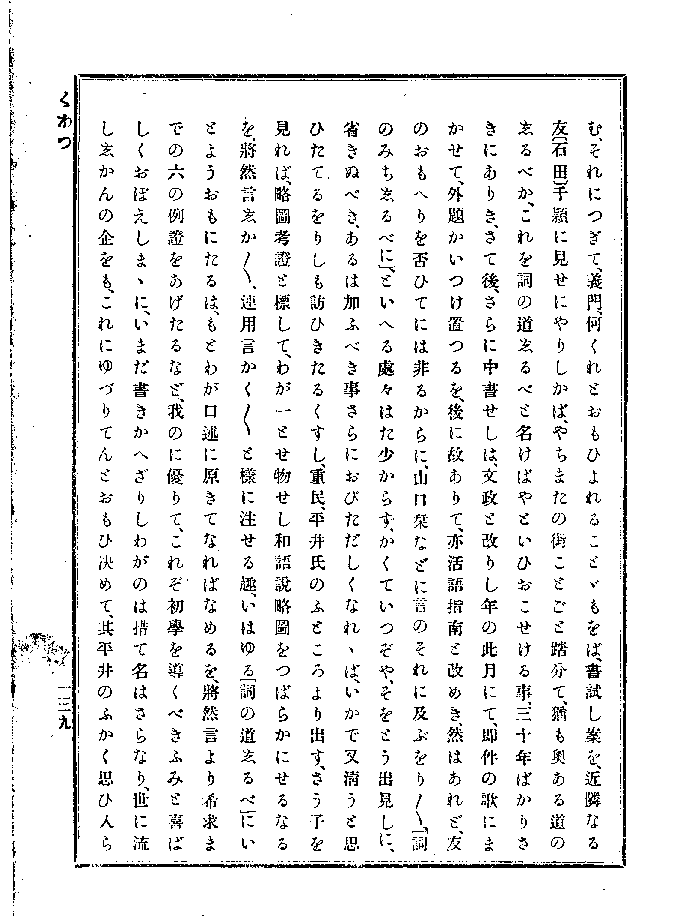 くわつ
む、それにつぎて、義門、何くれとおもひよれることゞもをば、書試し案を、近隣なる
友〔石田〕千穎に見せにやりしかば、やちまたの街ことごと踏分て、猶も奥ある道の
志るべか、これを詞の道志るべと名けばやといひおこせける事、三十年ばかりさ
きにありき、さて後、さらに中書せしは、文政と改りし年の此月にて、即件の歌にま
かせて、外題かいつけ置つるを、後に故ありて、亦活語指南と改めき、然はあれど、友
のおもへりを否ひてには非るからに、山口栞などに言のそれに及ぶをり〱「詞
のみち志るべに」、といへる處々はた少からず、かくていつぞや、そをとう出見しに、
省きぬべき、あるは加ふべき事さらにおびただしくなれゝば、いかで又淸うと思
ひたてるをりしも訪ひきたるくすし、重民、平井氏のふところより出す、さう子を
見れば、略圖考證と標して、わが一とせ物せし和語說略圖をつばらかにせるなる
を、將然言志か〱、連用言かく〱と樣に注せる趣、いはゆる「詞の道志るべ」にい
とようおもにたるは、もとわが口述に原きてなればなめるを、將然言より希求ま
での六の例證をあげたるなど、我のに優りて、これぞ初學を導くべきふみと喜ば
しくおぼえしまゝに、いまだ書きかへざりしわがのは捨て名はさらなり、世に流
し志かんの企をも、これにゆづりてんとおもひ決めて、其平井のふかく思ひんら
一三九